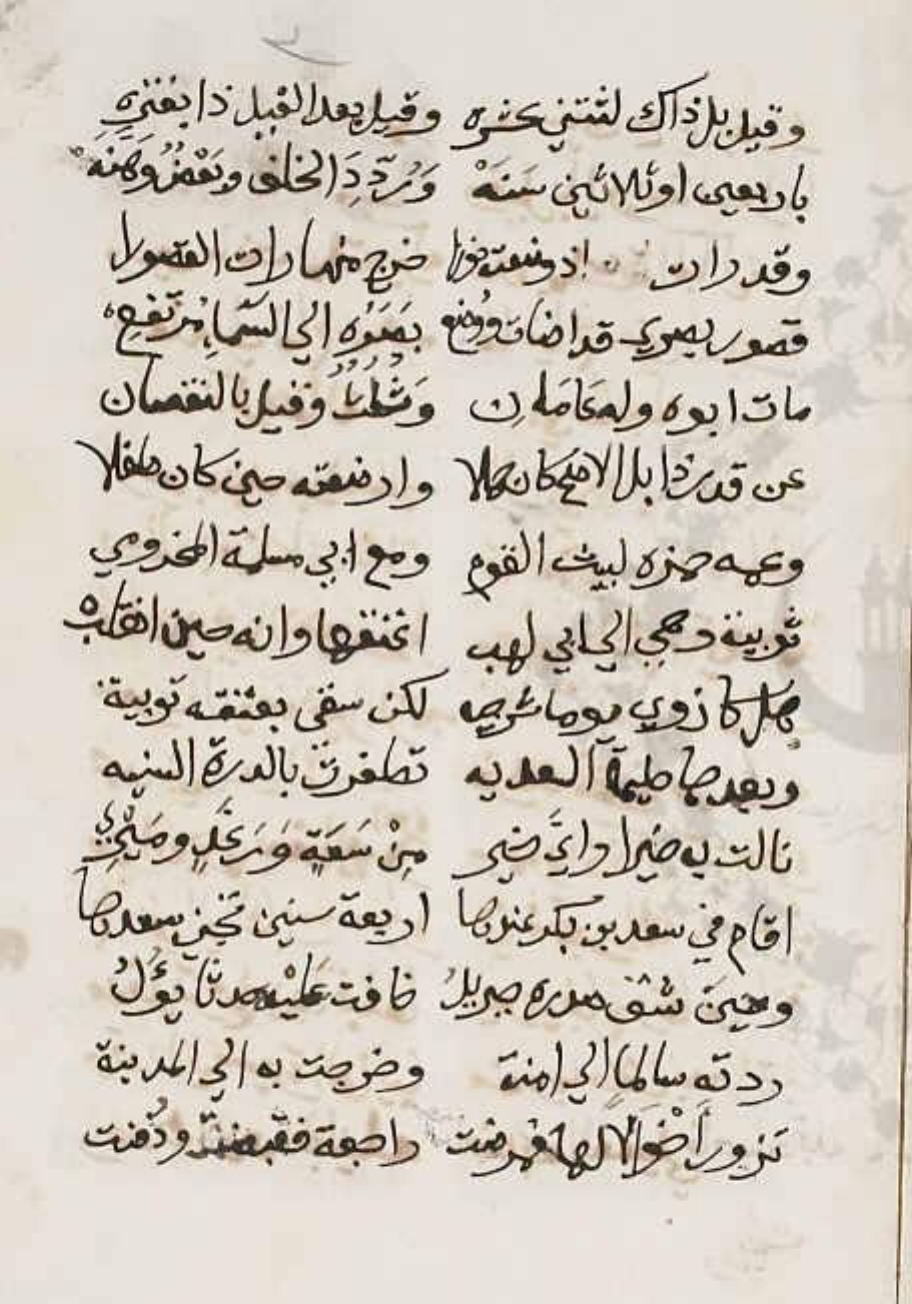 وقيل بل ذاك لثنتي عشره وقيل بعد الفيل ذا بفتره
باربعين او ثلاثين سنَهْ وَرُدّدَ الخلف وبَعْضُ وَهَّنَهْ
وقد رات اذ وضعت نورا خرج منها رات القصورا
قصور بصري قد اضات ووُضِع بصَرُه الي السّماءِ مُرتفِع
مات ابوه وله عَامَان وَثُلثٌ وقيل بالنقصان
عن قدر ذا بل الاصح كان حملا وارضعته حين كان طفلا
وعمه حمزه ليث القوم ومع ابي سلمة المخزومي
ثويبة وهي الي ابي لهب اعتقها وانه حين انقلب
هلكا رُوي يوما بشر حيبه لكن سقي بعتقه ثويبة
وبعدها حليمة السعديه تظفرت بالدرة السنيه
نالت به خيرا وايَّ خير مِنْ سَعَةٍ وَرَغَدٍ ومَيْرِ
اقام في سعد بن بكر عندها اربعة سنين تجني سعدها
وحينَ شق صدره جبريلُ خافت عَلَيْه حدثا يؤُلُ
ردته سالما الي امنة وخرجت به الي المدينة
تزور اَخْوَالا لها فمرضت راجعة فقبضت ودُفنت